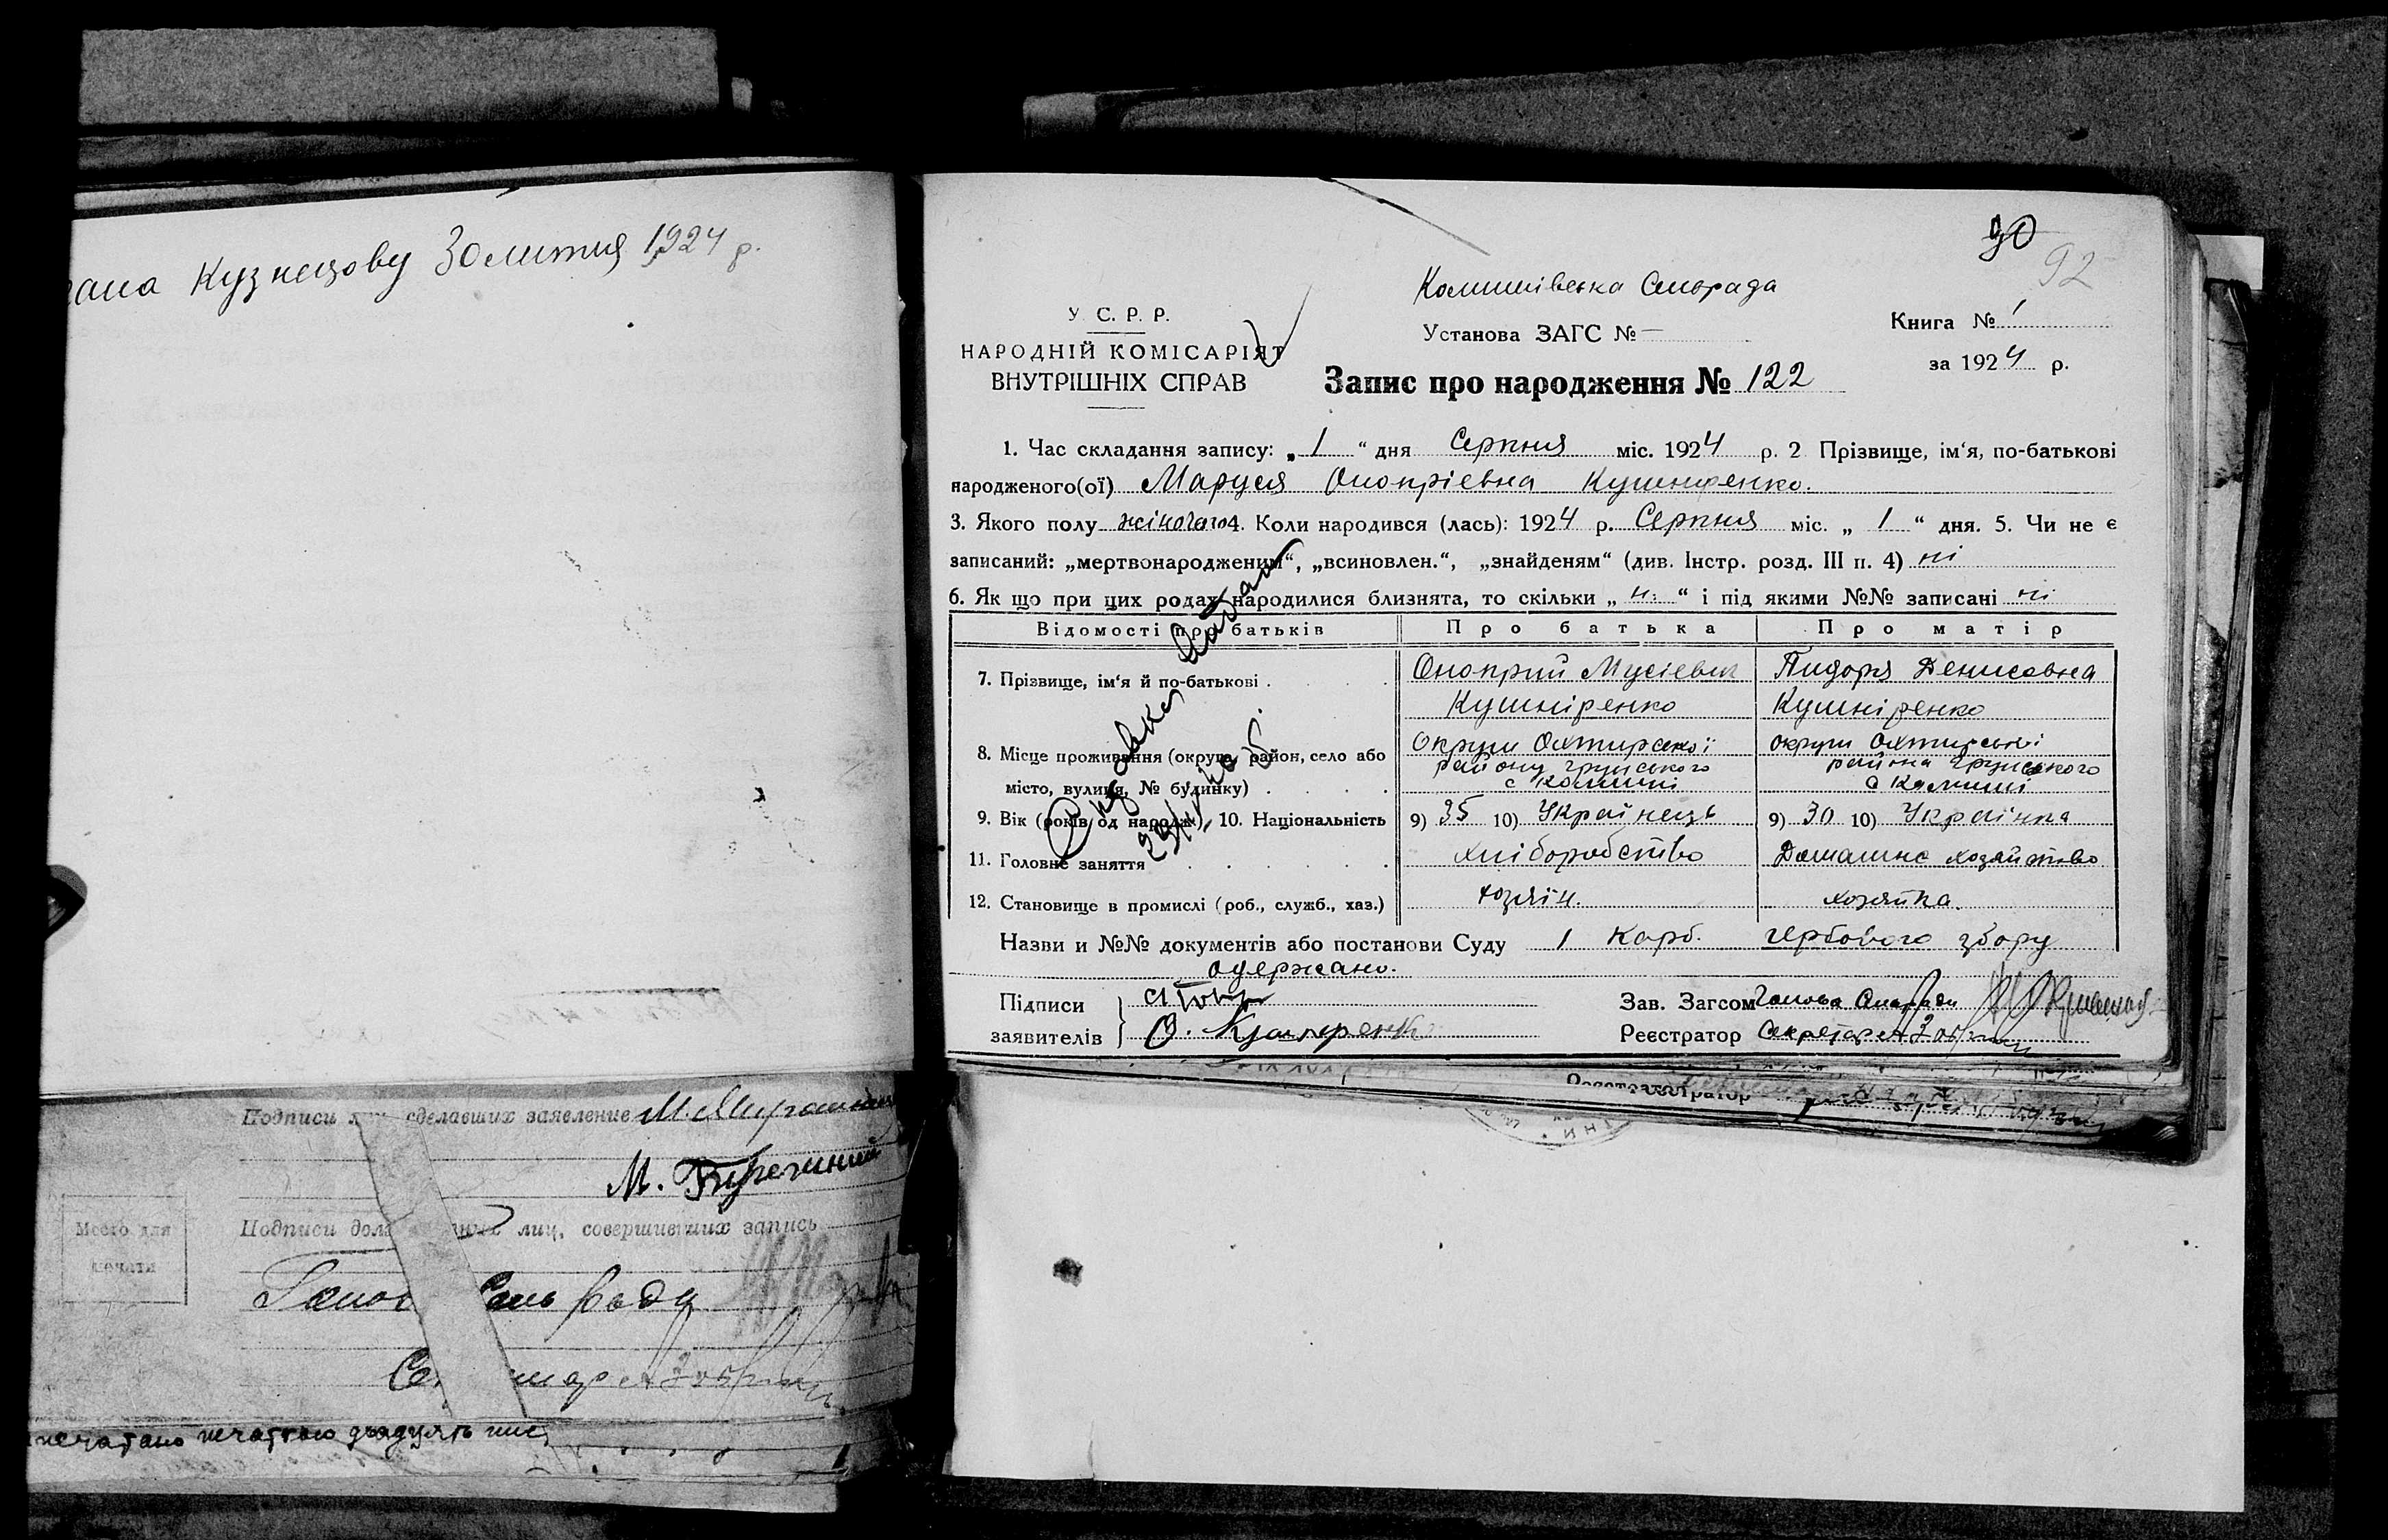 Кузнецову 30 липня 1924 р.
Подписи сделавших заявление
М.
Подписи лиц, совершивших запись
Место для
печати
печаткою двадцять
90
92
Комишівська Сільрада
У. С. Р. Р.
НАРОДНІЙ КОМІСАРІЯТ
ВНУТРІШНІХ СПРАВ
Установа ЗАГС № —
Книга № 1
за 1924 р.
Запис про народження № 122
1. Час складання запису: „ 1 “ дня Серпня міс. 1924 р. 2 Прізвище, ім‘я, по-батькові
народженого(ої) Маруся Онопріевна Кушніренко.
3. Якого полу жіночого 4. Коли народився (лась): 1924 р. Серпня міс. „ 1 “ дня. 5. Чи не є
записаний: „мертвонародженим“, „всиновлен.“, „знайденям“ (див. Інстр. розд. III п. 4) ні
6. Як що при цих родах народилися близнята, то скільки „ н. “ і під якими №№ записані ні
Відомості про батьків Про батька Про матір
7. Прізвище, ім‘я й по-батькові . Оноприй Мусіевич Денисовна
Кушніренко Кушніренко
8. Місце проживання (округа, район, село або Округи Охтирської округи Охтирської
району Грунського района Грунського
місто, вулиця, № будинку) . с Комиші с Комиші
9. Вік (років од народж.), 10. Національність 9) 35 10) Українець 9) 30 10) Українка
11. Головне заняття Хліборобство Домашне хозяйство
12. Становище в промислі (роб., служб., хаз.) хозяїн. хозяйка.
Назви и №№ документів або постанови Суду 1 Карб. гербового збору
одержано.
Підписи
заявителів О. Кушнеренко
Зав. Загсом Голова Сільради
Реєстратор Секретар
Реєстратор